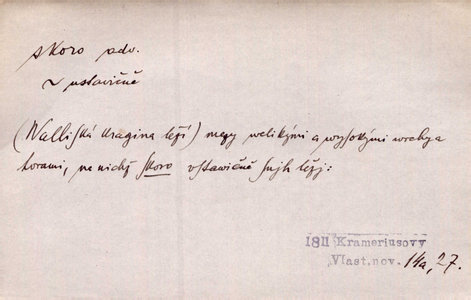 skoro adv.
~ ustavičně
(Walliská kragina leží) mezy welikými a wysokými wrchy a
horami, na nichž skoro vstawičně snjh ležj:
1811 Krameriusovy
Vlast.nov. 14a, 27.